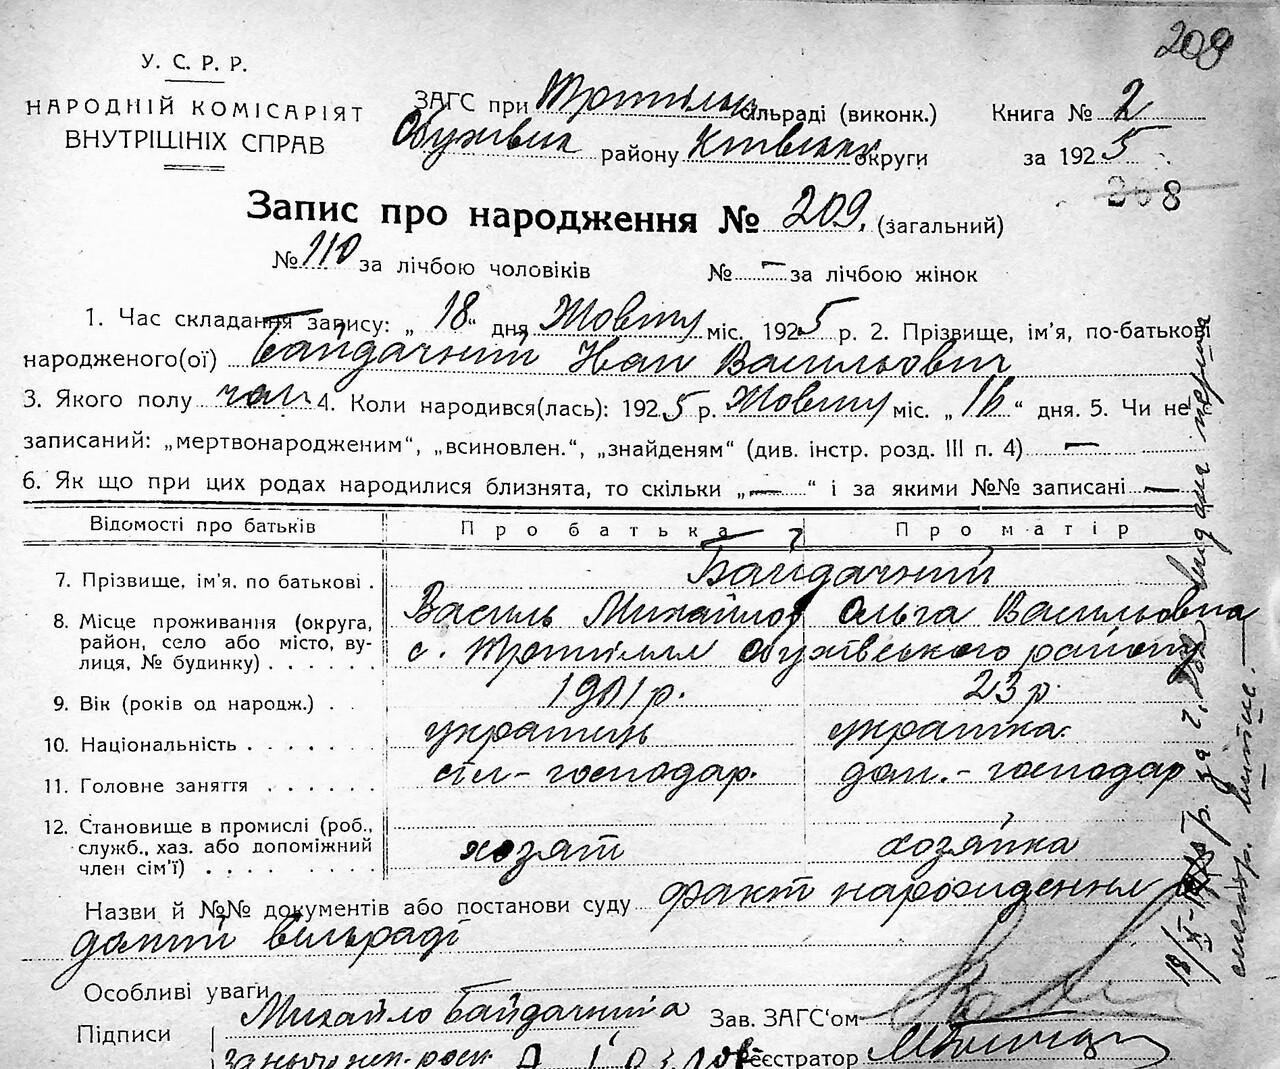 209
У. С. Р. Р.
НАРОДНІЙ КОМІСАРІЯТ
ВНУТРІШНІХ СПРАВ
ЗАГС при Трипільск сільраді (виконк.)
Обухівск району Київськ округи
Книга № 2
за 1925
208
Запис про народження № 209. (загальний)
№ 110 за лічбою чоловіків № — за лічбою жінок
1. Час складання запису: „ 18 “ дня Жовтну міс. 1925 р. 2. Прізвище, ім'я, по-батькові
народженого(ої) Байдачний Иван Васильович
3. Якого полу чол 4. Коли народився(лась): 1925 р. Жовтну міс. „16“ дня. 5. Чи не
записаний: „мертвонародженим“, „всиновлен.“, „знайденям“ (див. інстр. розд. III п. 4) —
6. Як що при цих родах народилися близнята, то скільки „—“ і за якими №№ записані —
Відомості про батьків Про батька Про матір
7. Прізвище, ім'я, по батькові . Байдачний
Василь Михайлов Ольга Васильовна
8. Місце проживання (округа,
район, село або місто, ву-
лиця, № будинку) . . . . . . с. Трипілля Обухівського району
9. Вік (років од народж.) . . 1901 р. 23 р.
10. Національність . . . . . . . українець українка.
11. Головне заняття . . . . . . сіл-господар. дом.-господар
12. Становище в промислі (роб.,
служб., хаз. або допоміжний
член сім'ї) . . . . . . . хозяїн хозяйка
Назви й №№ документів або постанови суду факт народження
даний сільраді
Особливі уваги
Підписи Михайло Байдачний
Зав. ЗАГС'ом
Реєстратор